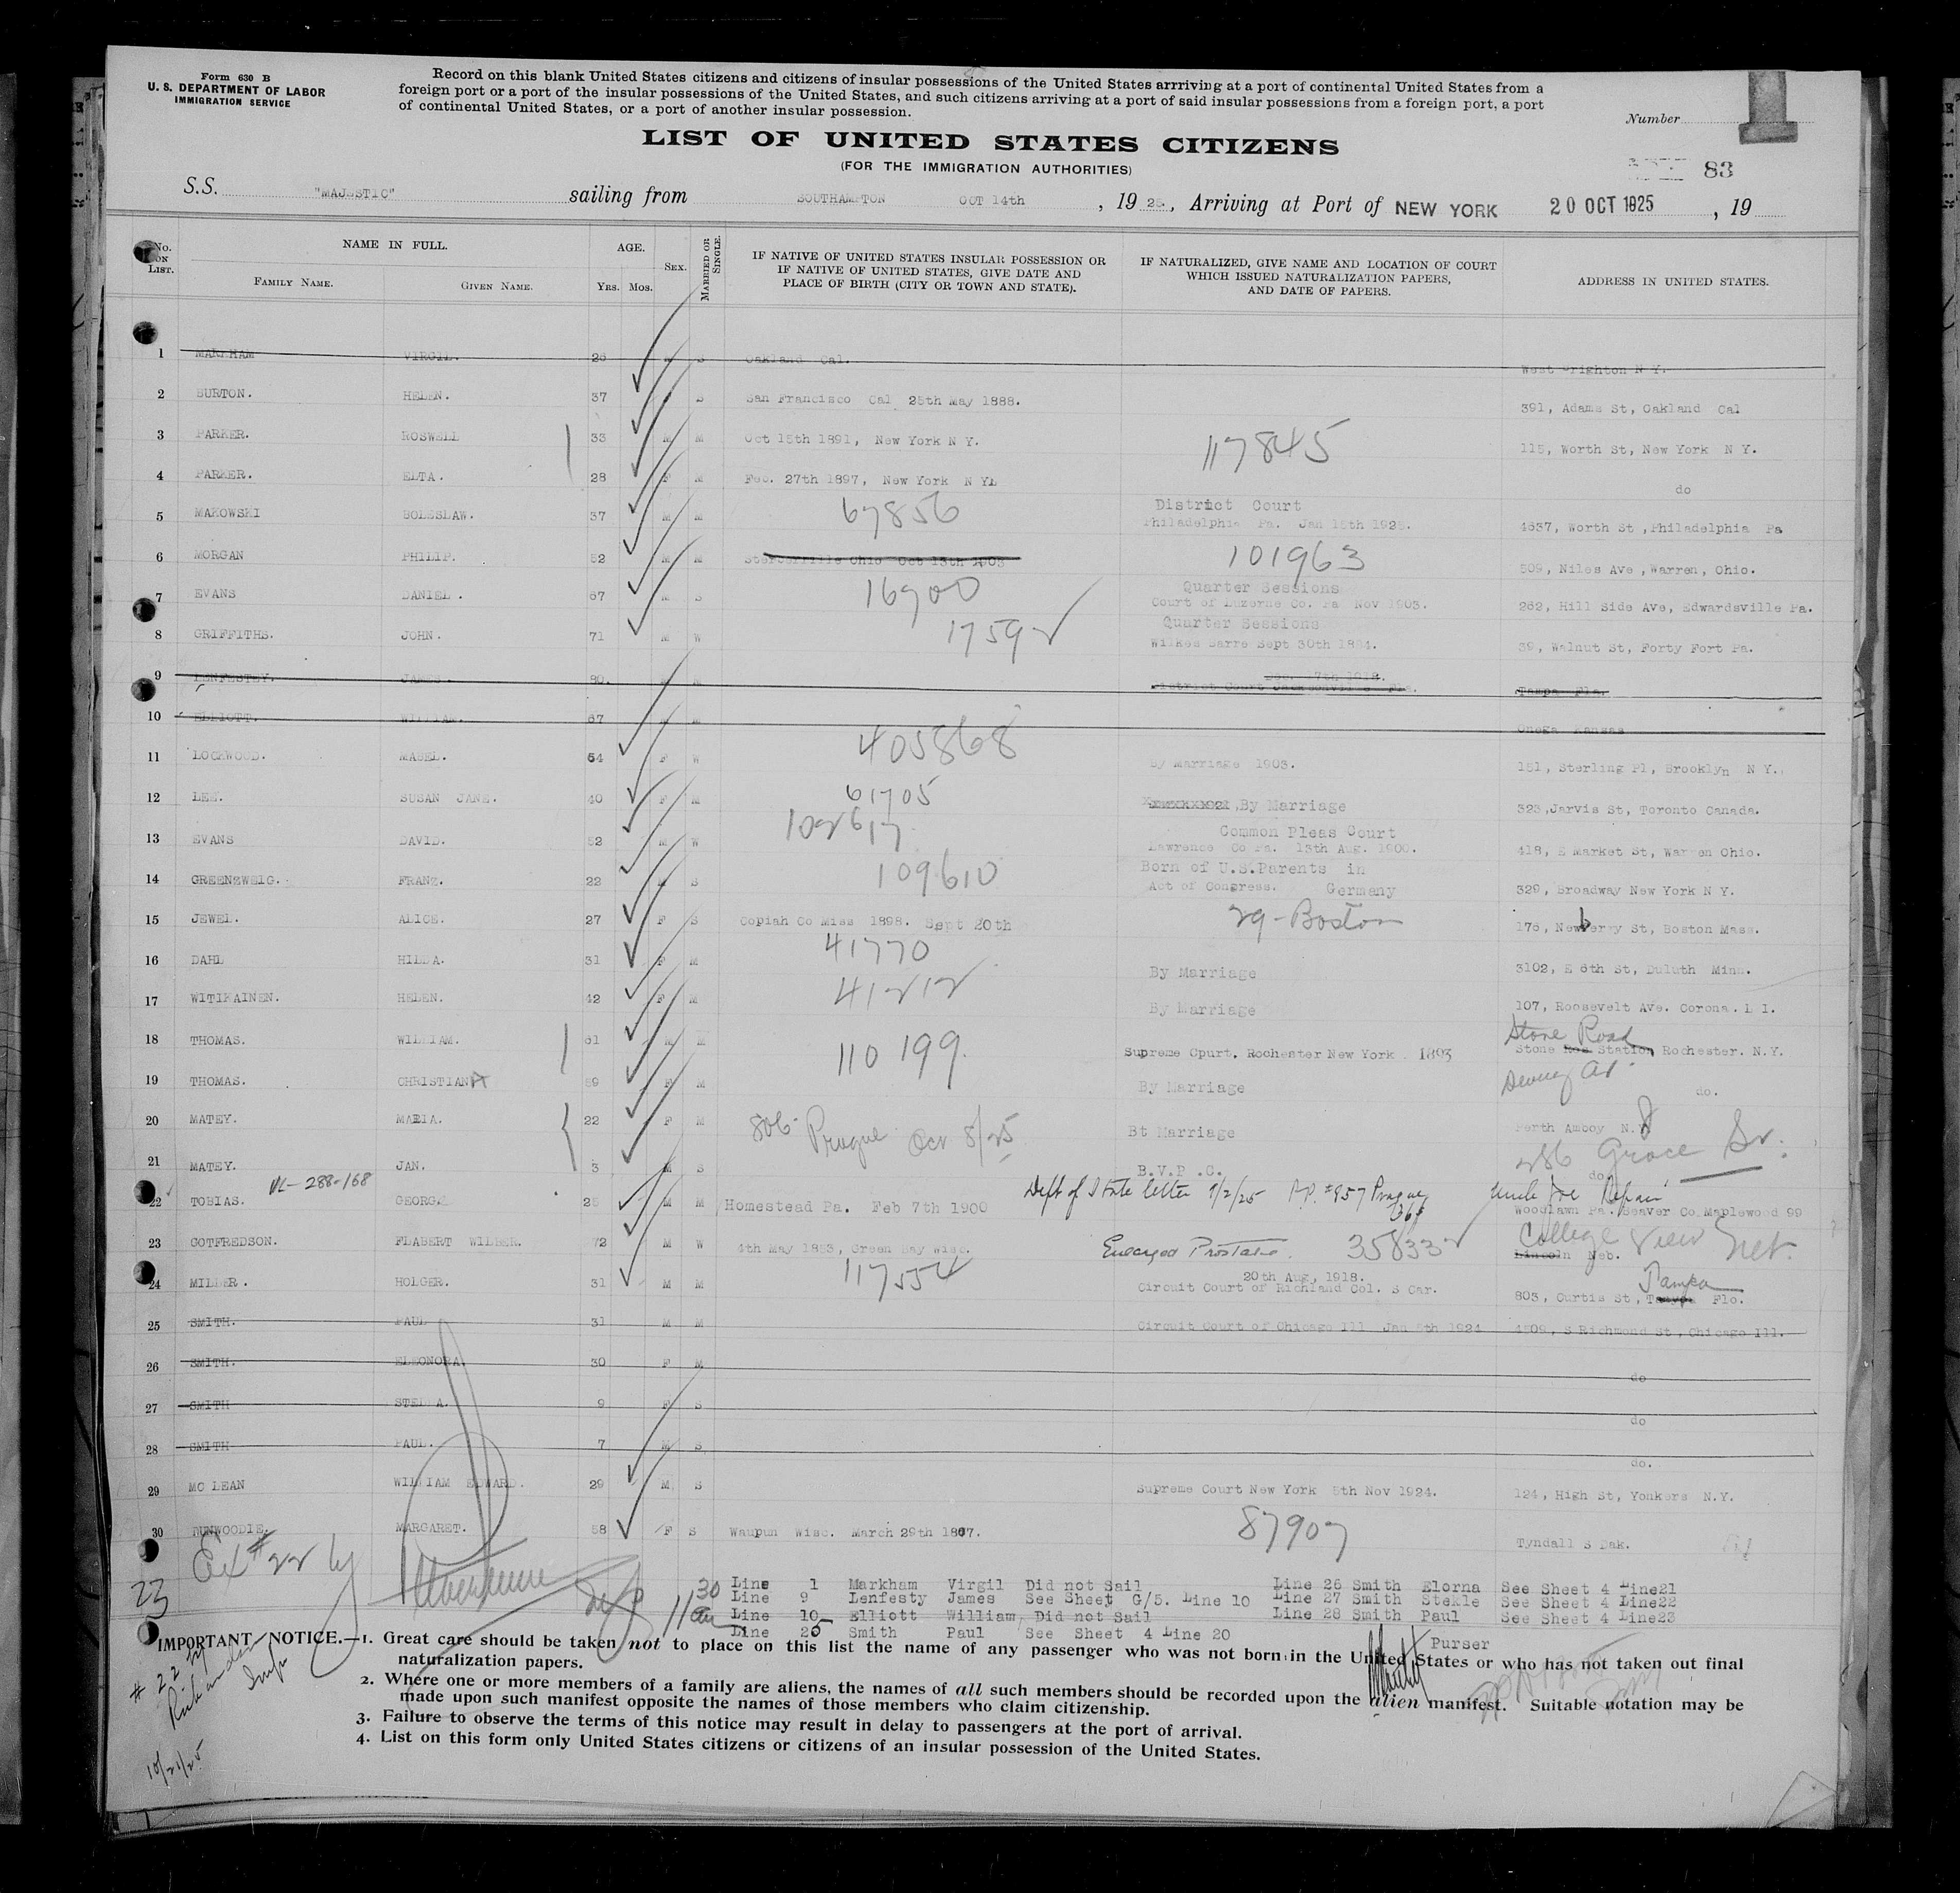 Form 630 B
U. S. DEPARTMENT OF LABOR
IMMIGRATION SERVICE
Record on this blank United States citizens and citizens of insular possessions of the United States arrriving at a port of continental United States from a
foreign port or a port of the insular possessions of the United States, and such citizens arriving at a port of said insular possessions from a foreign port, a port
of continental United States, or a port of another insular possession.
Number
LIST OF UNITED STATES CITIZENS
(FOR THE IMMIGRATION AUTHORITIES)
83
S.S. "MAJESTIC" sailing from SOUTHAMPTON OCT 14th , 19 25. , Arriving at Port of NEW YORK 20 OCT 1925 , 19
No. ON LIST. NAME IN FULL. AGE. SEX. MARRIED OR SINGLE. IF NATIVE OF UNITED STATES INSULAR POSSESSION OR IF NATIVE OF UNITED STATES, GIVE DATE AND PLACE OF BIRTH (CITY OR TOWN AND STATE). IF NATURALIZED, GIVE NAME AND LOCATION OF COURT WHICH ISSUED NATURALIZATION PAPERS, AND DATE OF PAPERS. ADDRESS IN UNITED STATES.
FAMILY NAME. GIVEN NAME. YRS. MOS.
1 MARKHAM VIRGIL. 26 S Oakland Cal. West Brighton N Y.
2 BURTON. HELEN. 37 F S San Francisco Cal 25th May 1888. 391, Adams St, Oakland Cal
3 PARKER. ROSWELL 33 M M Oct 15th 1891, New York N Y. 117845 115, Worth St, New York N Y.
4 PARKER. ELTA. 28 F M Feb. 27th 1897, New York N Y do
5 MAKOWSKI BOLESLAW. 37 M M 67856 District Court Philadelphia Pa. Jan 15th 1925. 4637, Worth St ,Philadelphia Pa
6 MORGAN PHILIP. 52 M M Ohio Oct 13th 1903 101963 509, Niles Ave ,Warren, Ohio.
7 EVANS DANIEL . 67 M S 16700 Quarter Sessions Court of Luzerne Co. Pa Nov 1903. 262, Hill Side Ave, Edwardsville Pa.
8 GRIFFITHS. JOHN. 71 M W 17592 Quarter Sessions Wilkes Barre Sept 30th 1894. 39, Walnut St, Forty Fort Pa.
9 LENFESTEY. JAMES. 80. M M 17th 1918. District Court Jacksonville Fla. Tampa Fla.
10 ELLIOTT. WILLIAM. 67 M M Onega Kansas
11 LOCKWOOD. MABEL. 54 F W 405868 By Marriage 1903. 151, Sterling Pl, Brooklyn N Y.
12 LEE. SUSAN JANE. 40 F M 61705 By Marriage 323,Jarvis St, Toronto Canada.
13 EVANS DAVID. 52 M W 102617 Common Pleas Court Lawrence Co Pa. 13th Aug. 1900. 418, E Market St, Warren Ohio.
14 GREENZWEIG. FRANZ. 22 M S 109610 Born of U.S.Parents in Act of Congress. Germany 329, Broadway New York N Y.
15 JEWEL. ALICE. 27 F S Copiah Co Miss 1898. Sept 20th 29-Boston 176, Newberry St, Boston Mass.
16 DAHL HILDA. 31 F M 41770 By Marriage 3102, E 6th St, Duluth Minn.
17 WITIKAINEN. HELEN. 42 F M 41212 By Marriage 107, Roosevelt Ave. Corona. L I.
18 THOMAS. WILLIAM. 61 M M 110199. Supreme Cpurt, Rochester New York . 1893 Stone Road Stone Station Rochester. N.Y.
19 THOMAS. CHRISTIANA 59 F M By Marriage Dewey Av. do.
20 MATEY. MARIA. 22 F M 806- Prague Oct 8/25 Bt Marriage Perth Amboy N.J
21 MATEY. JAN. 3 M S B.V.P .C. 286 Grace St. do
22 TOBIAS. VL-288-168 GEORGE 25 M M Homestead Pa. Feb 7th 1900 Dept of State letter 9/2/25 P.P. #957 Prague Uncle Joe Repair Woodlawn Pa. Beaver Co.Maplewood 99
23 GOTFREDSON. WILBER. 72 M W 4th May 1853, Green Bay Wisc. Enlarged Prostate. 358332 College View Net. Lincoln Neb.
24 MILLER . HOLGER. 31 M M 117554 20th Aug, 1918. Circuit Court of Richland Col. S Car. Tampa 803, Curtis St, Flo.
25 SMITH. PAUL 31 M M Circuit Court of Chicago Ill Jan 5th 1924 4509, S Richmond St, Chicago Ill.
26 SMITH. ELEONORA. 30 F M do
27 SMITH STELLA. 9 F S do
28 SMITH PAUL. 7 M S do.
29 MC LEAN WILLIAM EDWARD. 29 M S Supreme Court New York 5th Nov 1924. 124, High St, Yonkers N.Y.
30 DUNWOODIE. MARGARET. 58 F S Waupun Wisc. March 29th 1867. 87907 Tyndall S Dak.
Ex # 22 by
23
11 30 am
Line 1 Markham Virgil Did not Sail Line 26 Smith Elorna See Sheet 4 Line21
Line 9 Lenfesty James See Sheet G/5. Line 10 Line 27 Smith Stekle See Sheet 4 Line22
Line 10 Elliott William, Did not Sail Line 28 Smith Paul See Sheet 4 Line23
Line 25 Smith Paul See Sheet 4 Line 20
Purser
IMPORTANT NOTICE.—1. Great care should be taken not to place on this list the name of any passenger who was not born in the United States or who has not taken out final
naturalization papers.
2. Where one or more members of a family are aliens, the names of all such members should be recorded upon the alien manifest. Suitable notation may be
made upon such manifest opposite the names of those members who claim citizenship.
3. Failure to observe the terms of this notice may result in delay to passengers at the port of arrival.
4. List on this form only United States citizens or citizens of an insular possession of the United States.
# 22 by
10/21/25